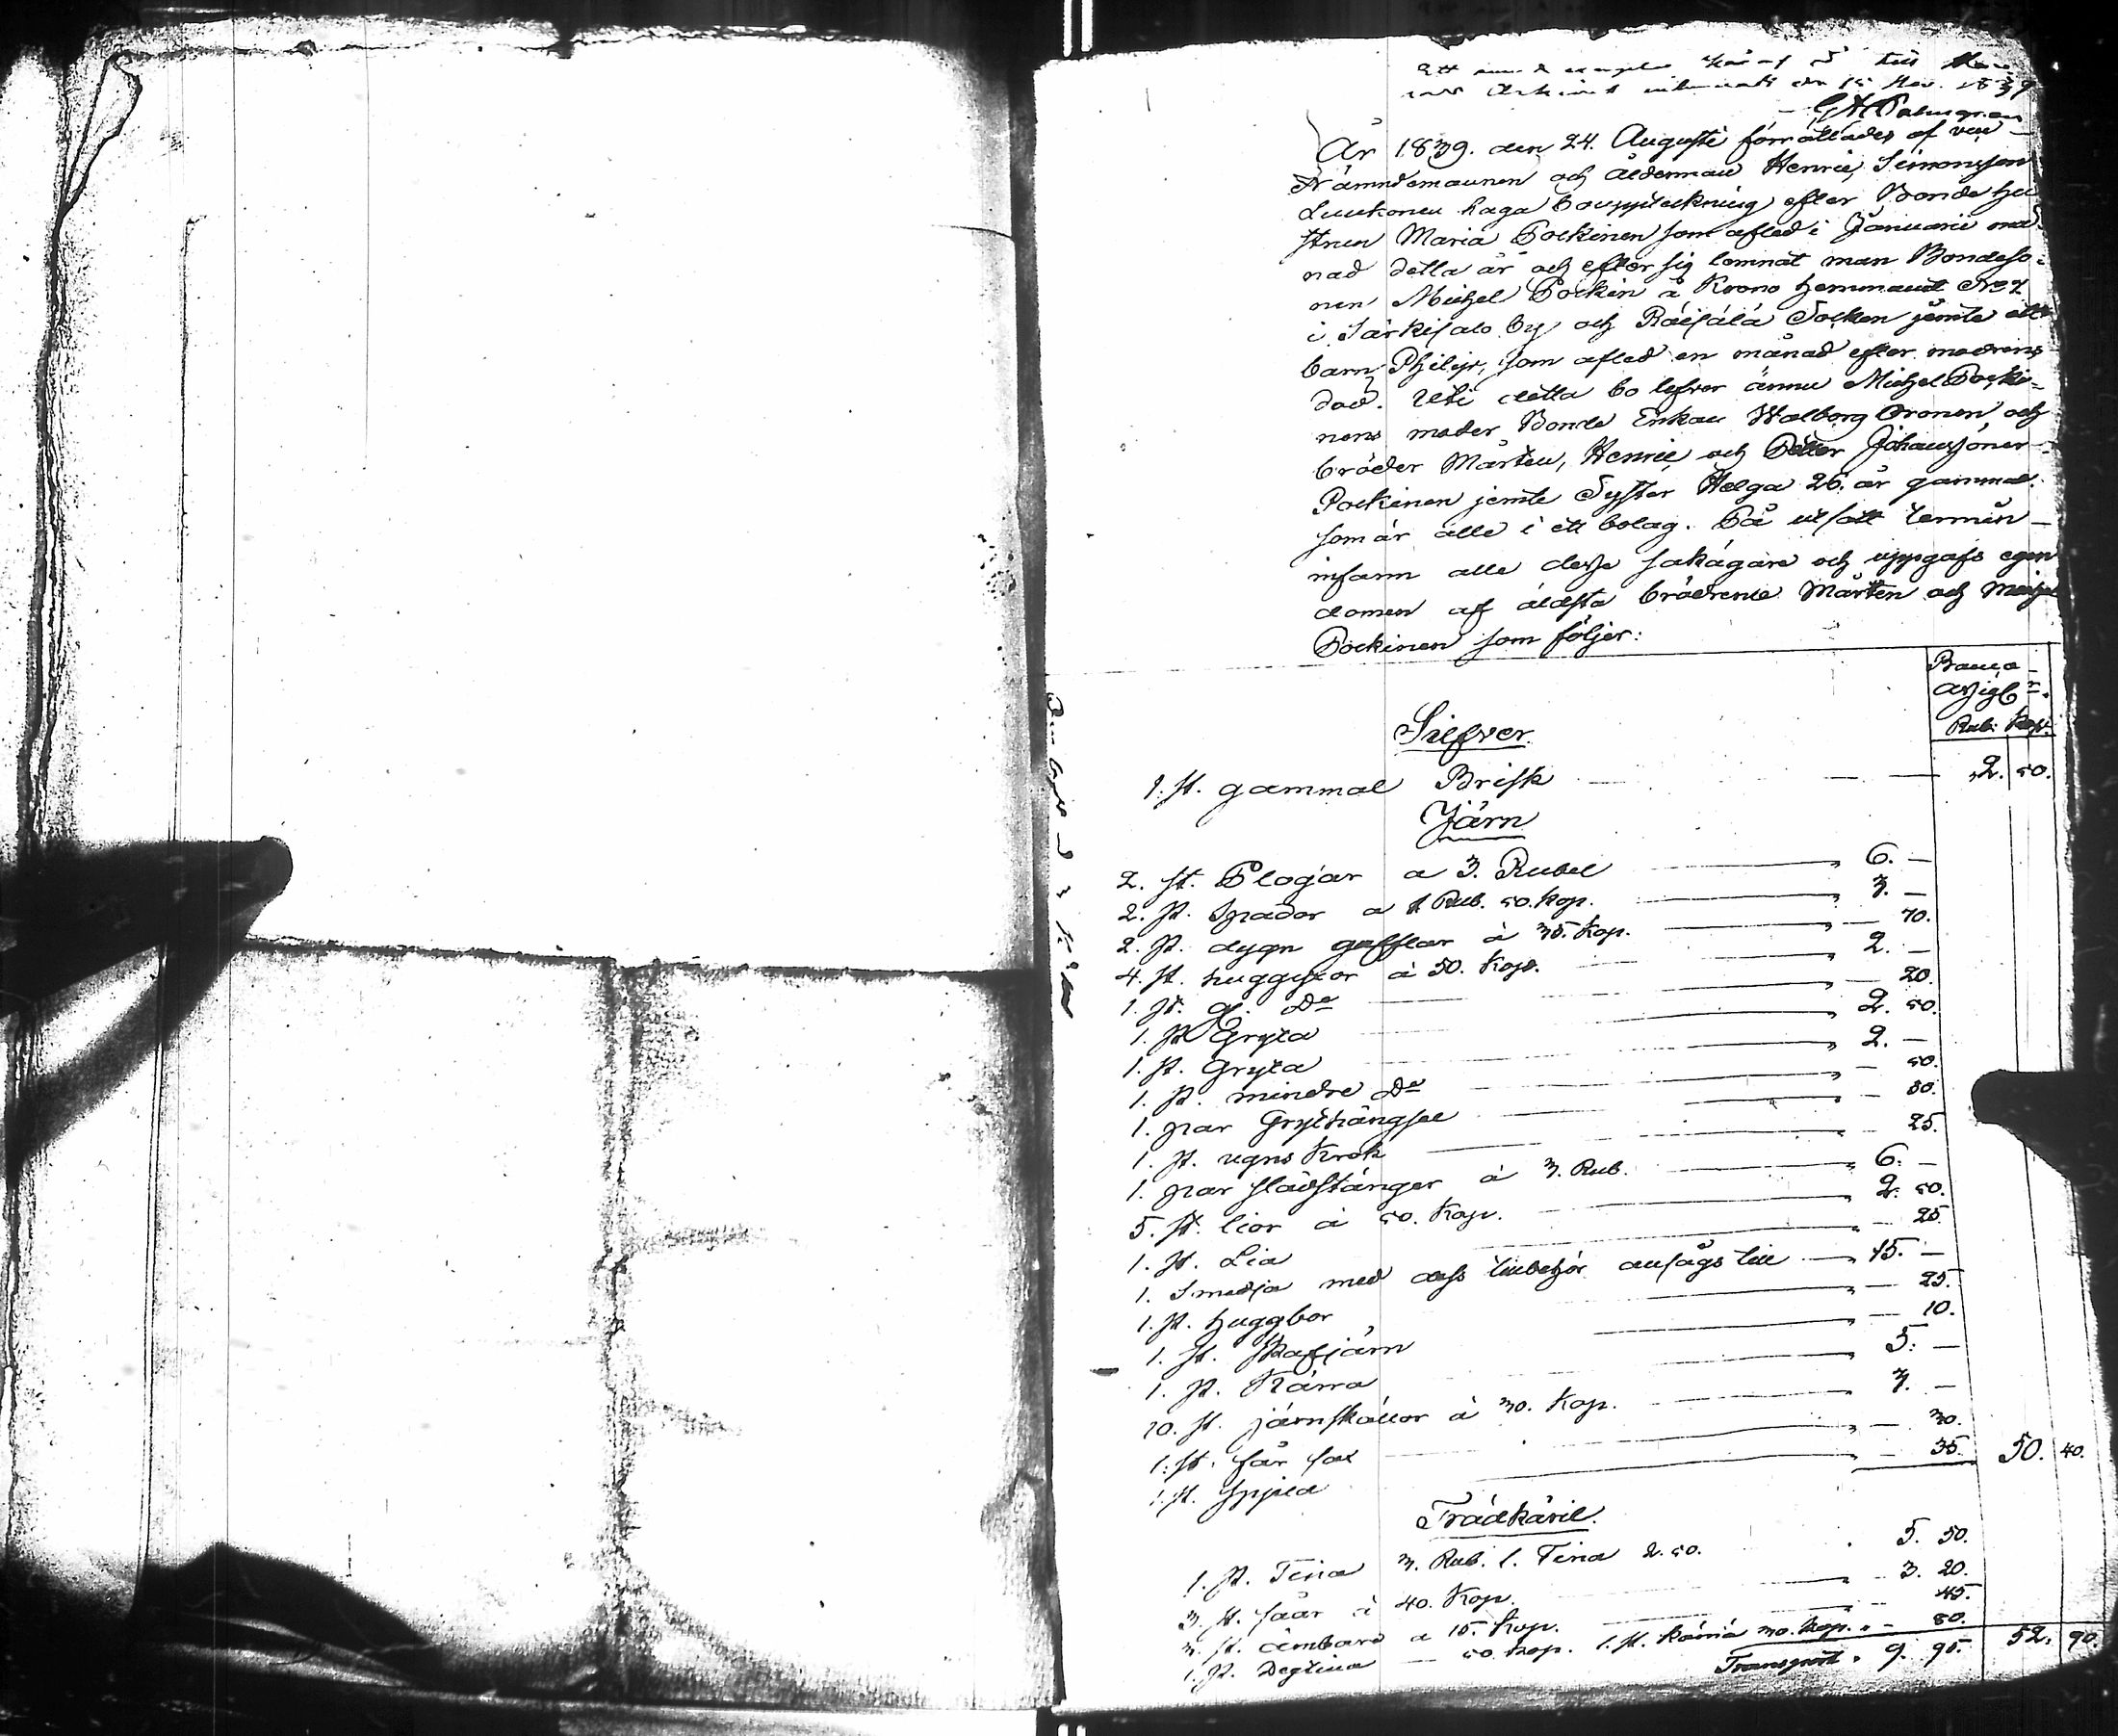 Ett exemplar här af till
Archivet den 15 Nov. 1839
G H Palmgren
År 1839. den 24. Augusti förrättades af und
Nämndemannen och ålderman Henric Simonsson
Luukonen laga bouppteckning efter Bonde hu
strun Maria Pockinen som afled i Januarii må
nad detta år och efter sig lemnat man Bondeso-
nen Michel Pockin å Krono hemmanet No 2
i Särkisalo by och Räisälä Socken jemte ett
barn Philip, som afled en månad efter modrens
död. Uti detta bo lefver ännu Michel Pocki-
nens moder Bonde Enkan Walborg Oronen och
bröder Mårten, Henric och Petter Johanssöner
Pockinen jemte Syster Helga 26. år gammal.
som är alle i ett bolag. På utsatt termin
infann alle desse sakägare och uppgafs egen
domen af äldsta bröderne Mårten och Michel
Pockinen som följer:
Banco
assign:
Rub: Kop:
Silfver
1. st. gammal Brisk 2. 50.
Järn
2. st. Plogar a 3. Rubel 6. —
2. st. Spador a 1 Rub. 50. Kop. 3. —
2. st. dygn gafflar à 35. Kop. — 70.
4. st. huggyxor à 50. Kop. 2. —
1. st. gl. Do — 20.
1. st Gryta 2. 50.
1. st. Gryta 2. —
1. st. mindre Do — 50.
1. par Grythängsel — 30.
1. st. ugns Krok — 25.
1. par slädstänger à 3. Rub. 6. —
5. st. lior à 50. Kop. 2. 50.
1. st. Lia — 25.
1. Smedja med dess tillbehör ansågs till 15. —
1. st. huggbor — 25.
1. st. skafjärn — 10.
1. st. Kärra 5. —
10. st. järnskållor à 30. Kop. 3. —
1. st. får sax — 30.
1. st. — 35. 50. 40.
Trädkäril.
1. st. Tina 3. Rub. 1. Tina 2. 50. 5. 50.
3. st. såar à 40. Kop. 3. 20.
3. st. ämbare a 15. Kop. — 45.
1. st. Degtina — 50. Kop. 1. st. kärna 30. Kop. — 80.
Transport 9. 95. 52. 90.